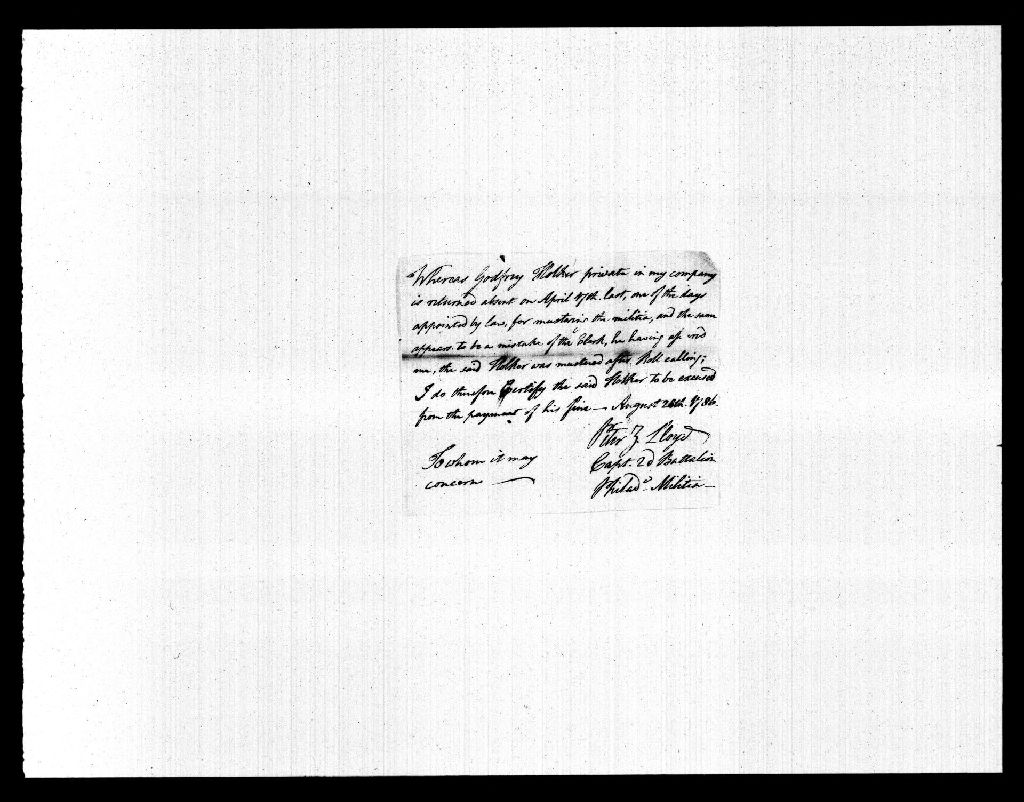 Whereas Godfrey Stokker private in my company
is returned absent on April 17th. last, one of the days
appointed by law, for mustering the militia, and the same
appears to be a mistake of the Clerk, he having assured
me, the said Stokker was mustered after Roll calling;
I do therefore Certify the said Stokker to be excused
from the payment of his fine — August 28th. 1786.
Peter Z. Lloyd
Capt. 2d Battalion
Philad.ᵃ Militia —
To whom it may
concern —